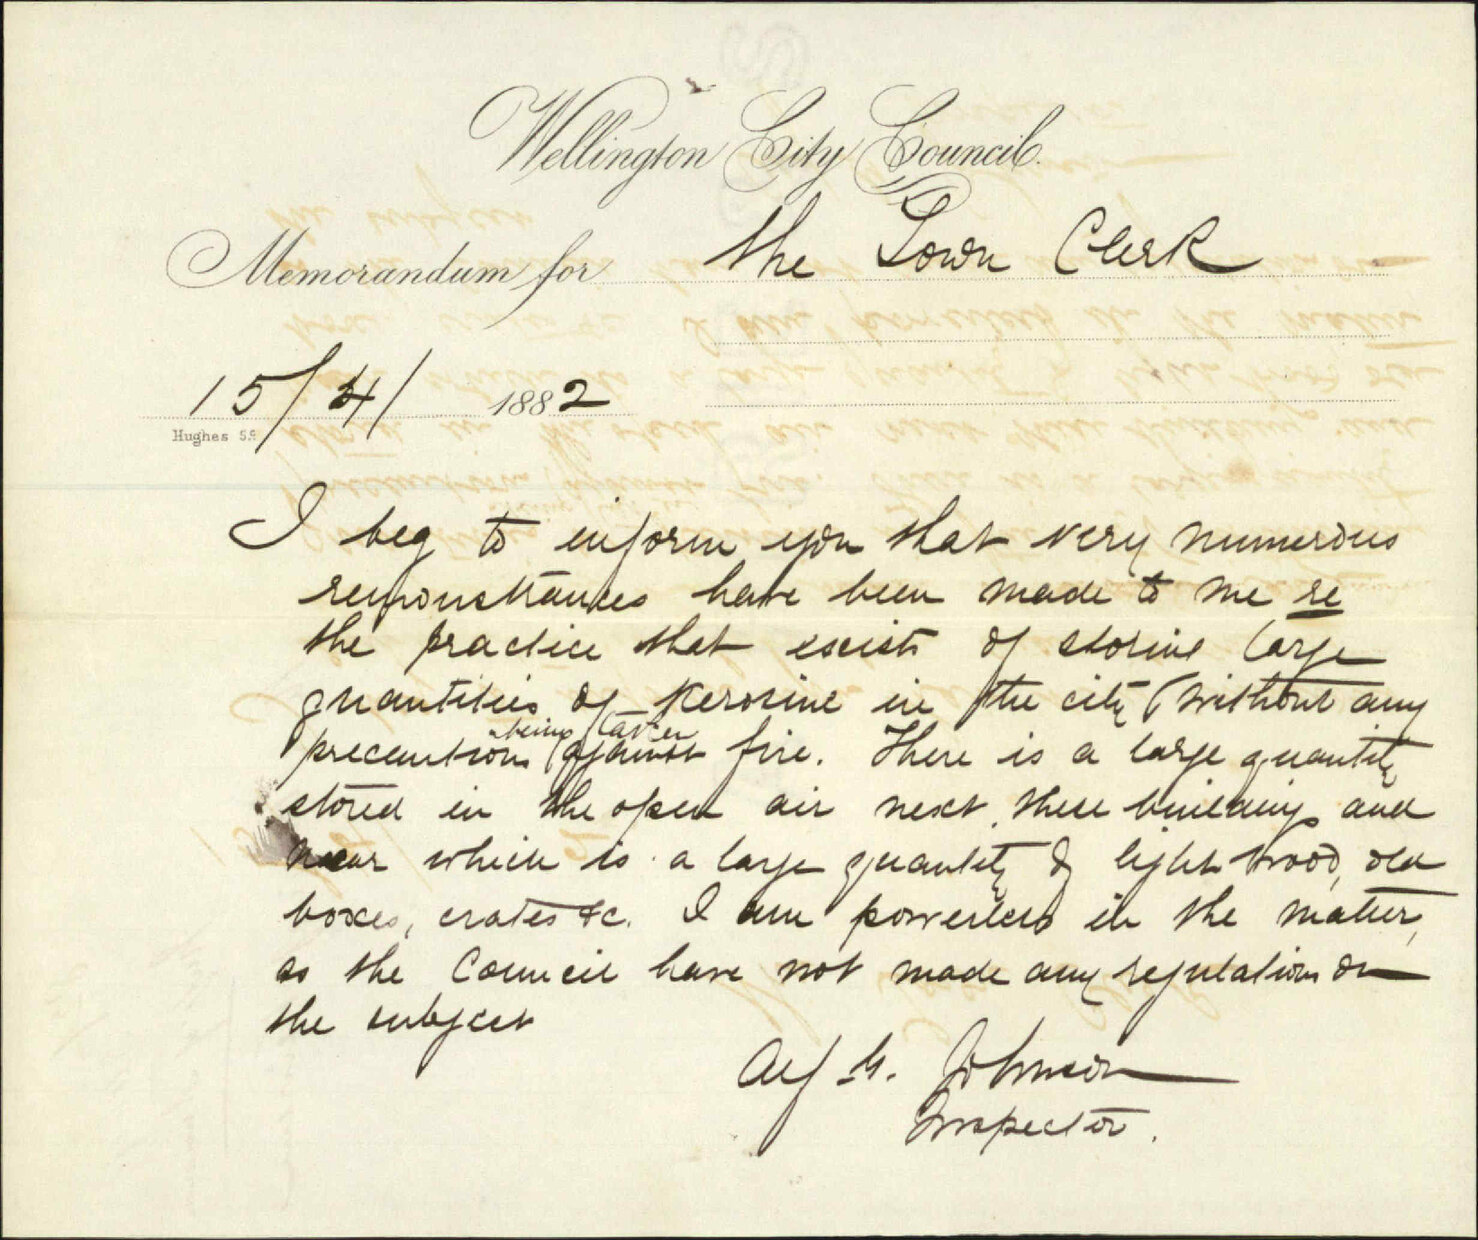 Wellington City Council.
Memorandum for the Town Clerk
15/4/ 1882
Hughes
I beg to inform you that very numerous
remonstrances have been made to me re
the practice that exists of storing large
quantities of Kerosine in the city (without any
being taken
precautions against fire. There is a large quantity
stored in the open air next these buildings and
near which is a large quantity of light wood, old
boxes, crates &c. I am powerless in the matter,
as the Council have not made any regulations on
the subject
Alf. G. Johnson
Inspector.